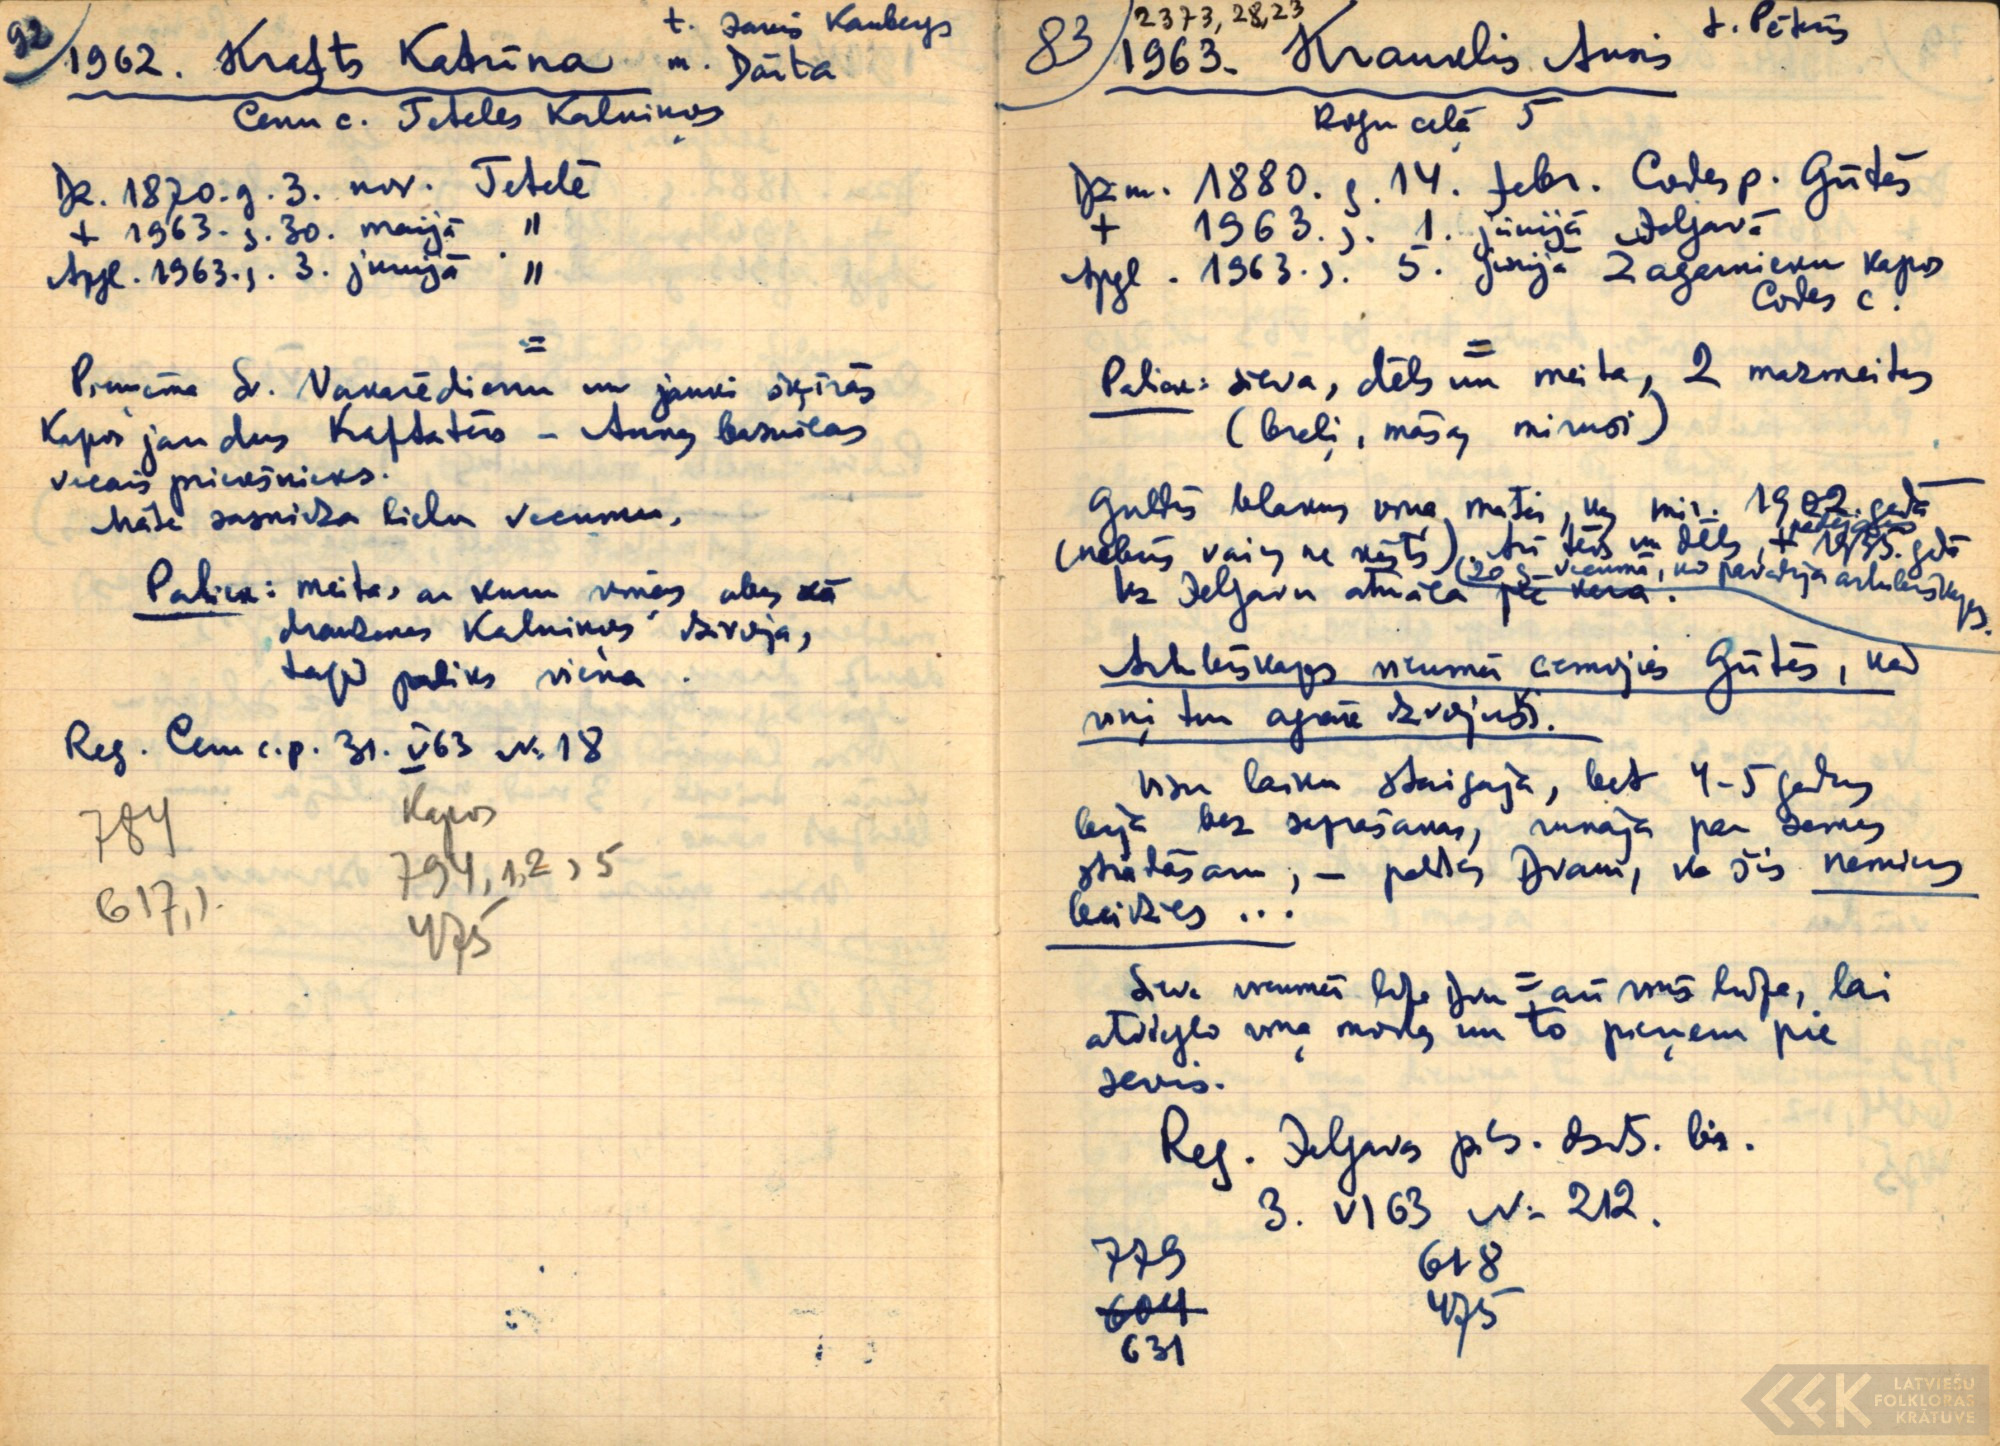 92
1962. Krafts Katrīna
t. Jānis Kanbergs
m. Dārta
Cenu c. Teteles Kalniņos
Dz. 1870. g. 3. nov. Tetelē
+ 1963. g. 30. maijā "
Apgl. 1963. g. 3. jūnijā "
=
Pieņēma Sv. Vakarēdienu un jauki šķīrās
Kapos jau dus Kraftatēvs – Annas baznīcas
vecais priekšnieks.
Māte sasniedza lielu vecumu.
Paliek: meita, ar kuru viņas abas kā
draudzenes Kalniņos dzīvoja,
tagad paliks viena.
Reg. Cenu c.p. 31. V 63 Nr. 18
784
617,1.
Kapos
794,1,2,5
475
83
2373, 28,23
1963. Krauklis Ansis
t. Pēteris
Rogu ceļā 5
Dzim. 1880. g. 14. febr. Codes p. Gūtēs
+ 1963. g. 1. jūnijā Jelgavā
Apgl. 1963. g. 5. jūnijā Zagarnieku kapos
Codes c.
=
Paliek: sieva, dēls un meita, 2 mazmeitas
(brāļi, māsas miruši)
Guldīs blakus viņa mātei, kas mir. 1902. gadā
(nebūs vairs ne kests), Arī tēvs un dēls, + 1935. gadā
(20 g. vecumā, ko pavadīja arhibīskaps.
Uz Jelgavu atnāca pēc kara.
Arhibīskaps vienmēr ciemojies Gūtēs, kad
viņi tur agrāk dzīvojuši.
Visu laiku staigāja, bet 4–5 gadus
bija bez saprašanas, runāja par zemes
strādāšanu, – paldies Dievam, ka šis nemiers
beidzies ...
Sieva vienmēr lūdza Dievu = arī viņš lūdza, lai
atvieglo viņa mokas un to pieņem pie
sevis.
Reg. Jelgavas pils. dzits. bir.
3. VI 63 Nr. 212.
779
604
631
618
475
LATVIEŠU
FOLKLORAS
KRĀTUVE